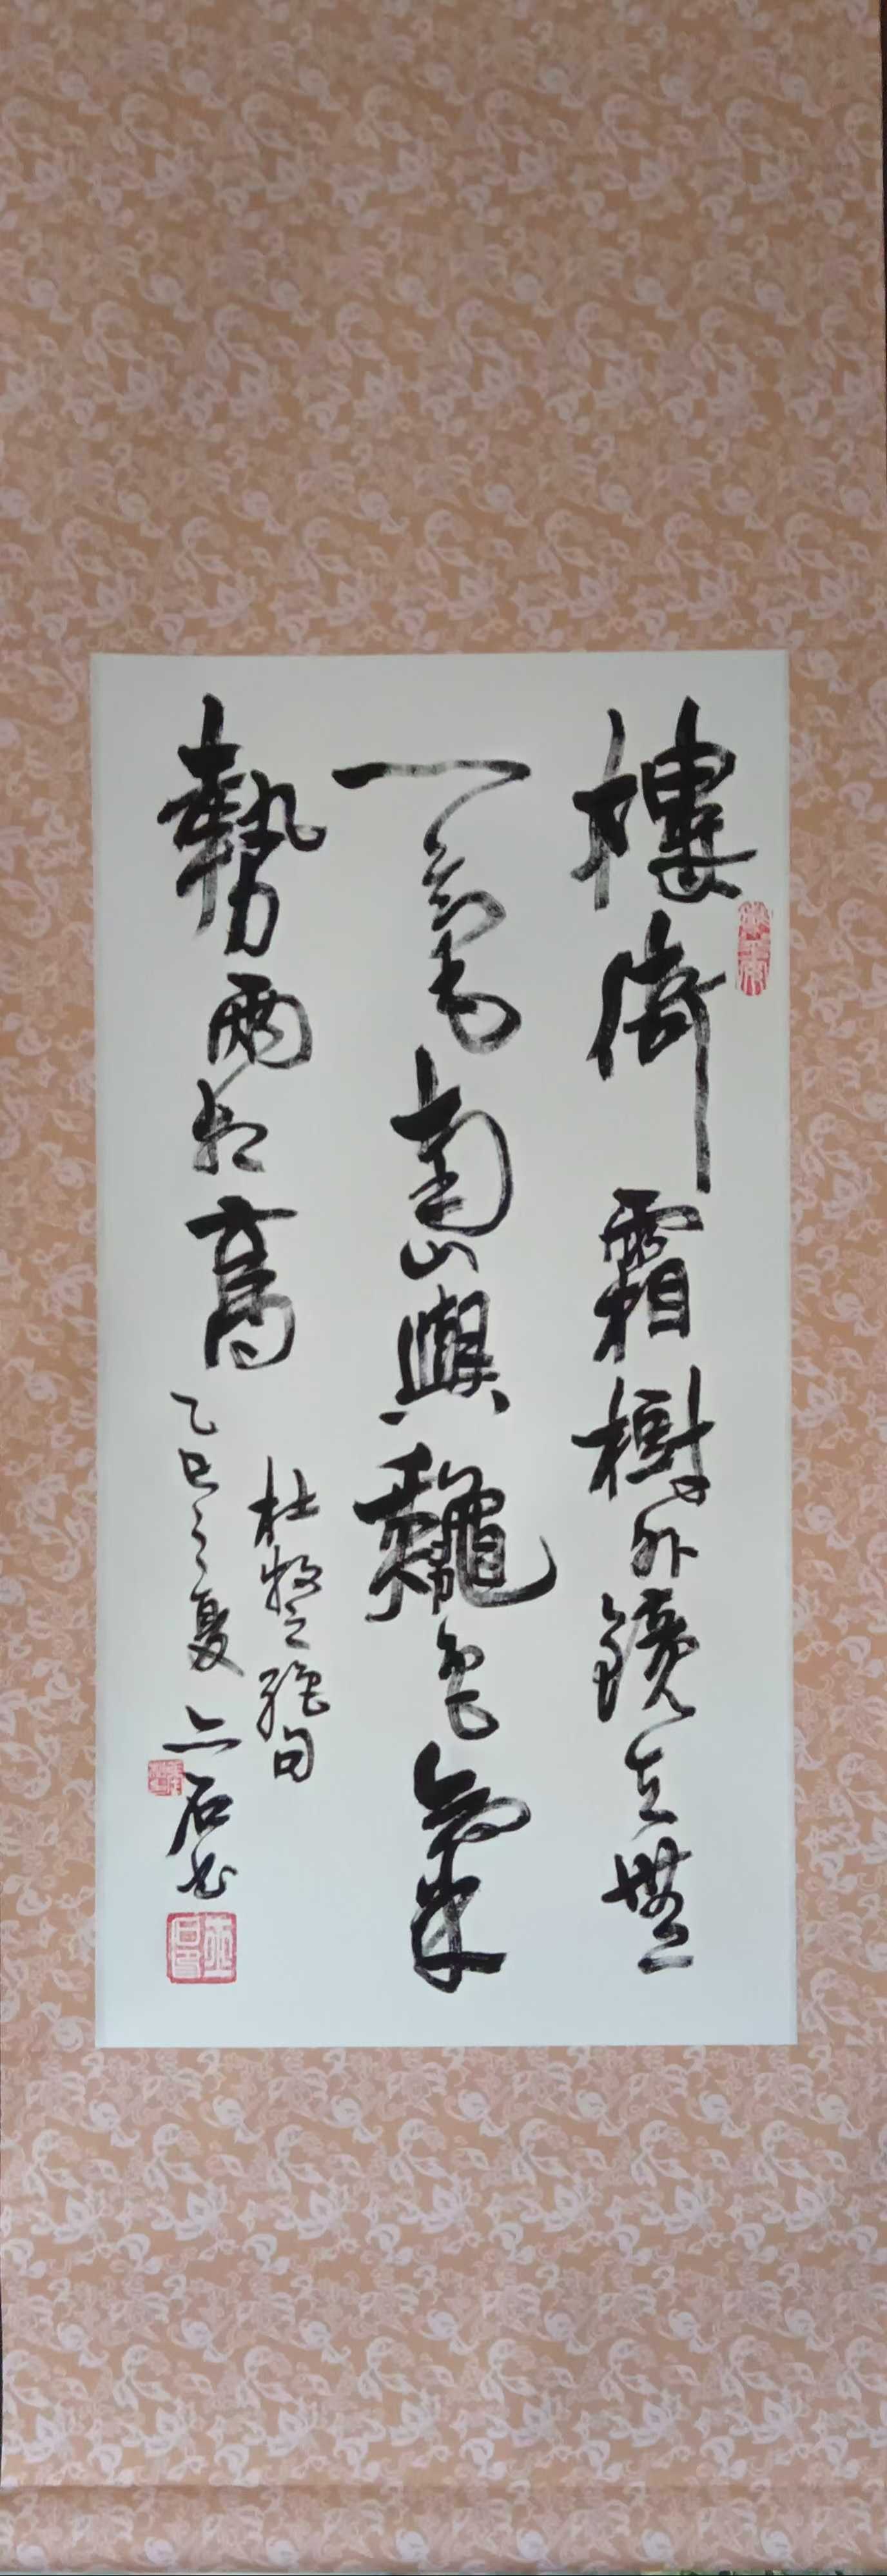 樓倚霜樹外鏡天無
一毫南山與龝色氣
勢兩相高
杜牧之絕句
乙巳之夏石書